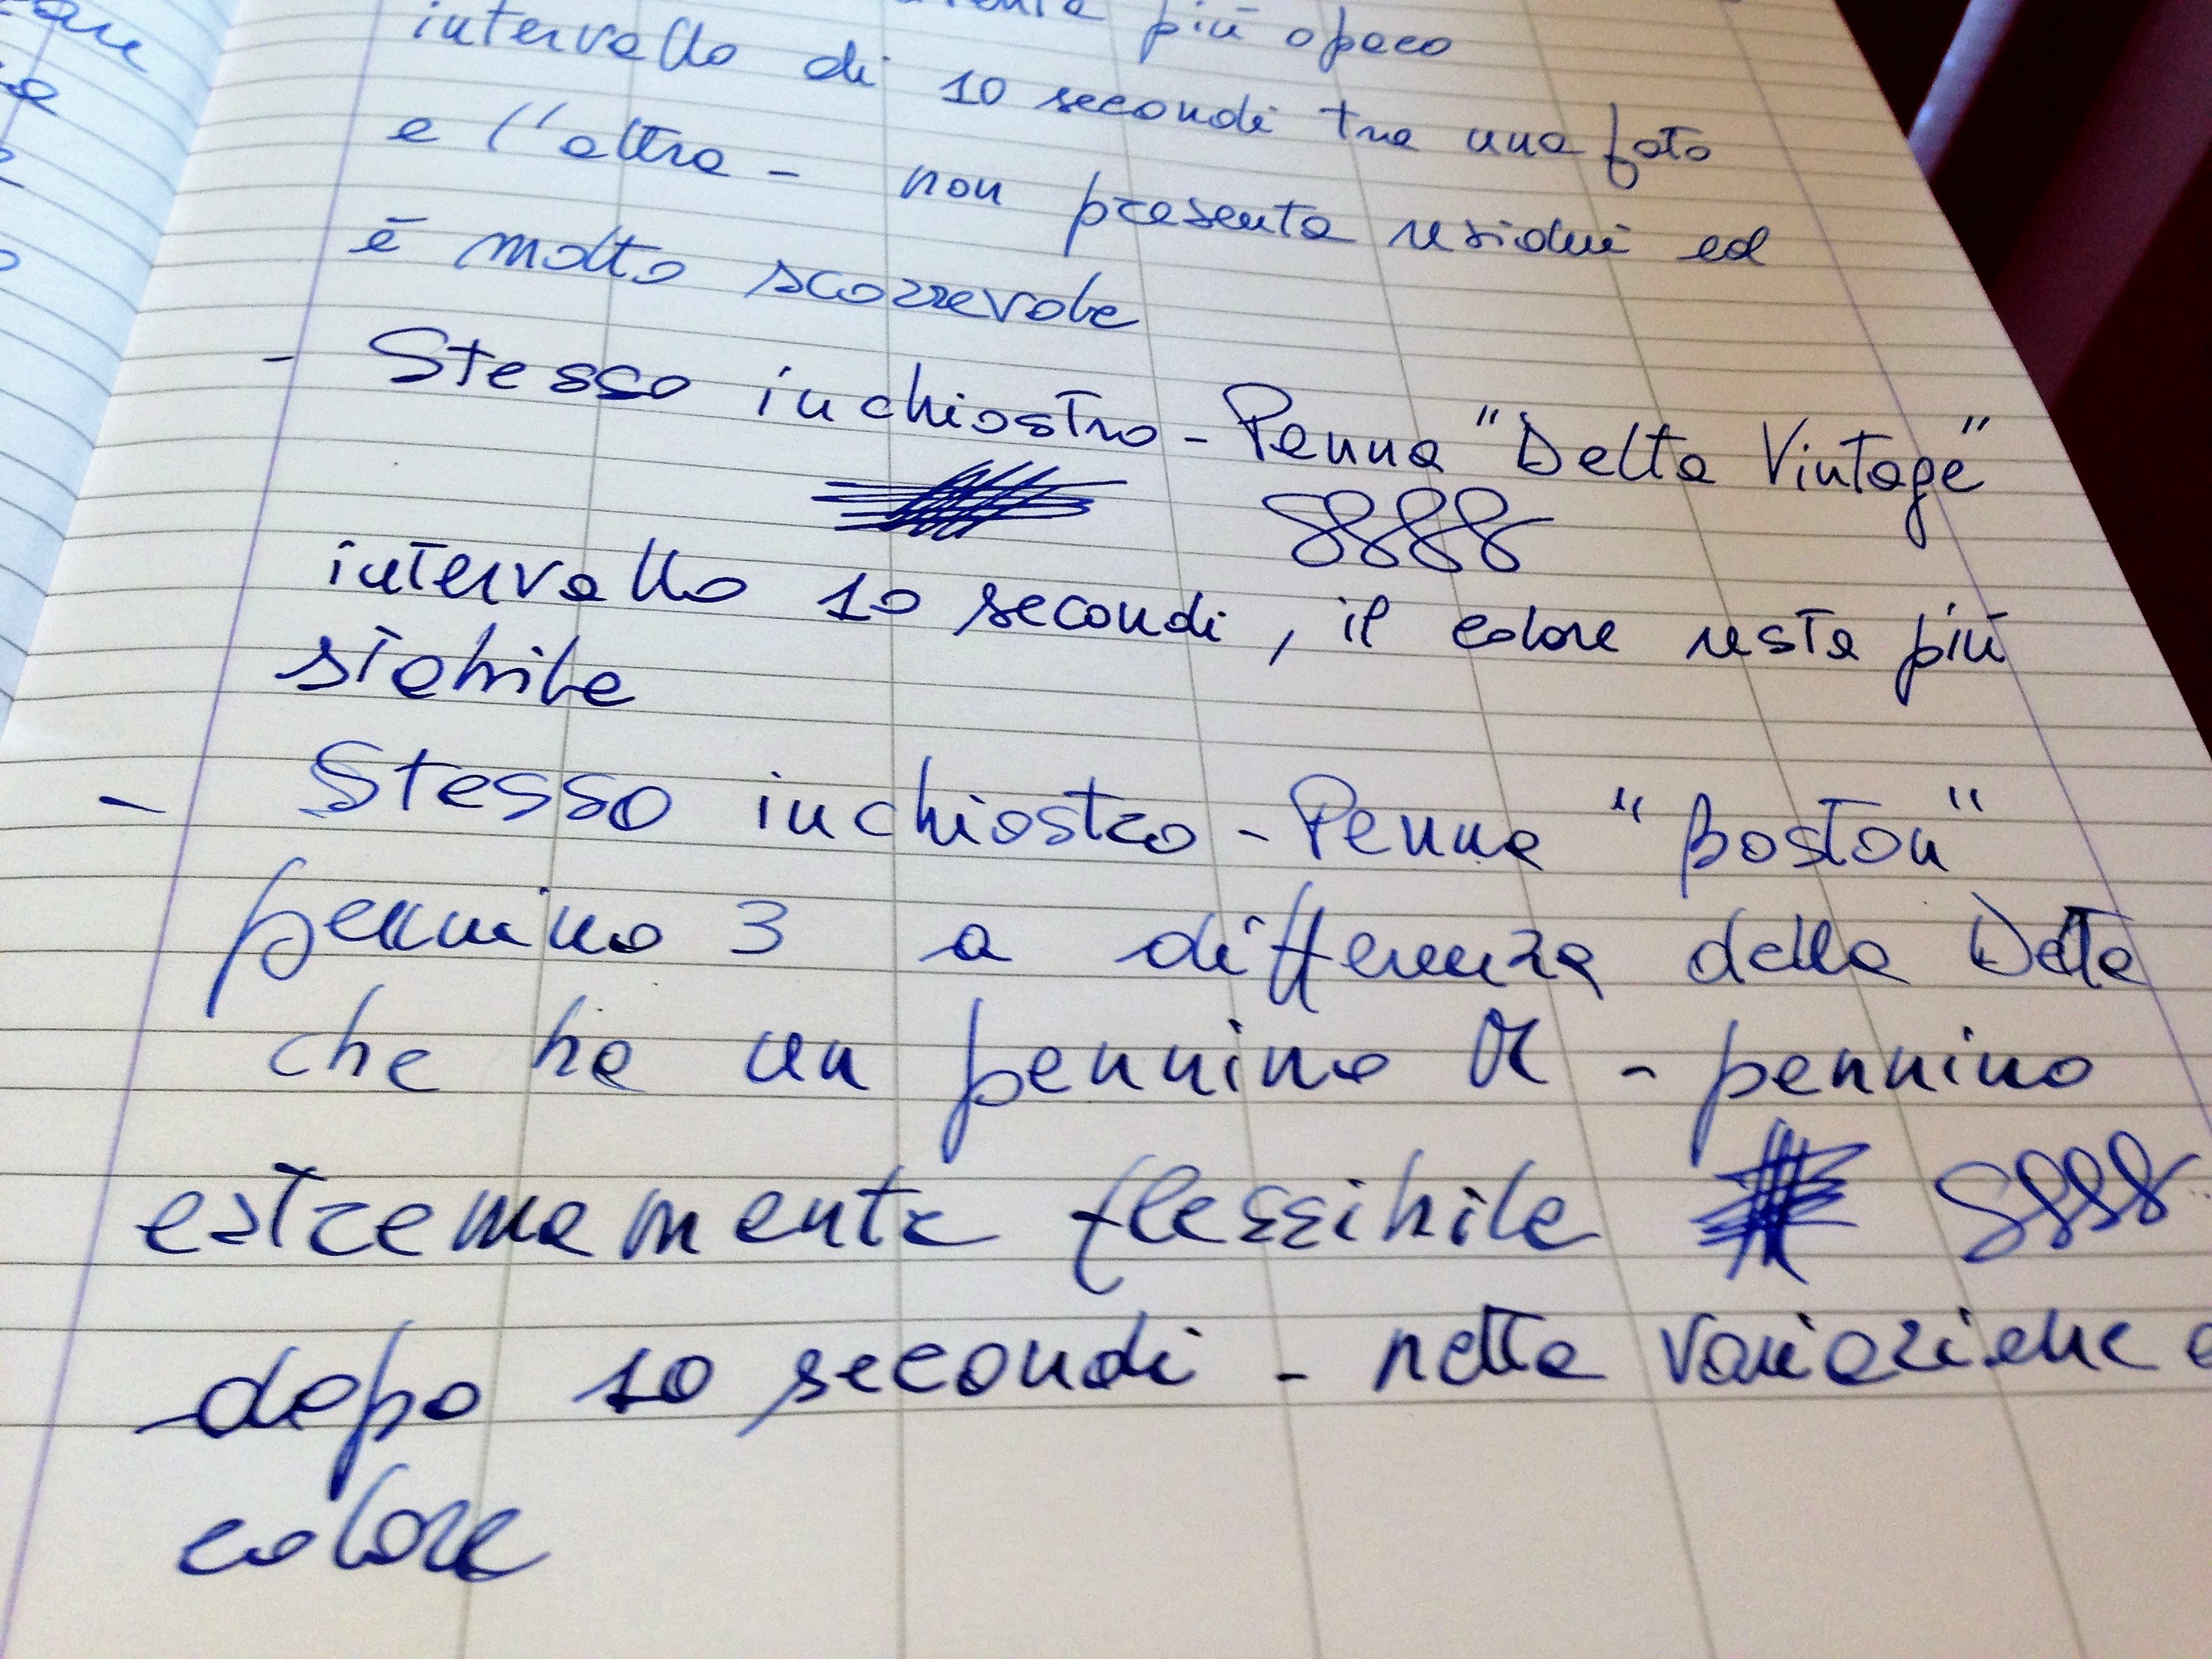 più opaco
intervallo di 10 secondi tra una foto
e l'altra - non presenta residui ed
è molto scorrevole
- Stesso inchiostro - Penna "Delta Vintage"
8888
intervallo 10 secondi, il colore resta più
stabile
- Stesso inchiostro - Penna "Boston"
pennino 3 a differenza della Delta
che ha un pennino M - pennino
estremamente flessibile 8888
dopo 10 secondi - netta variazione
colore